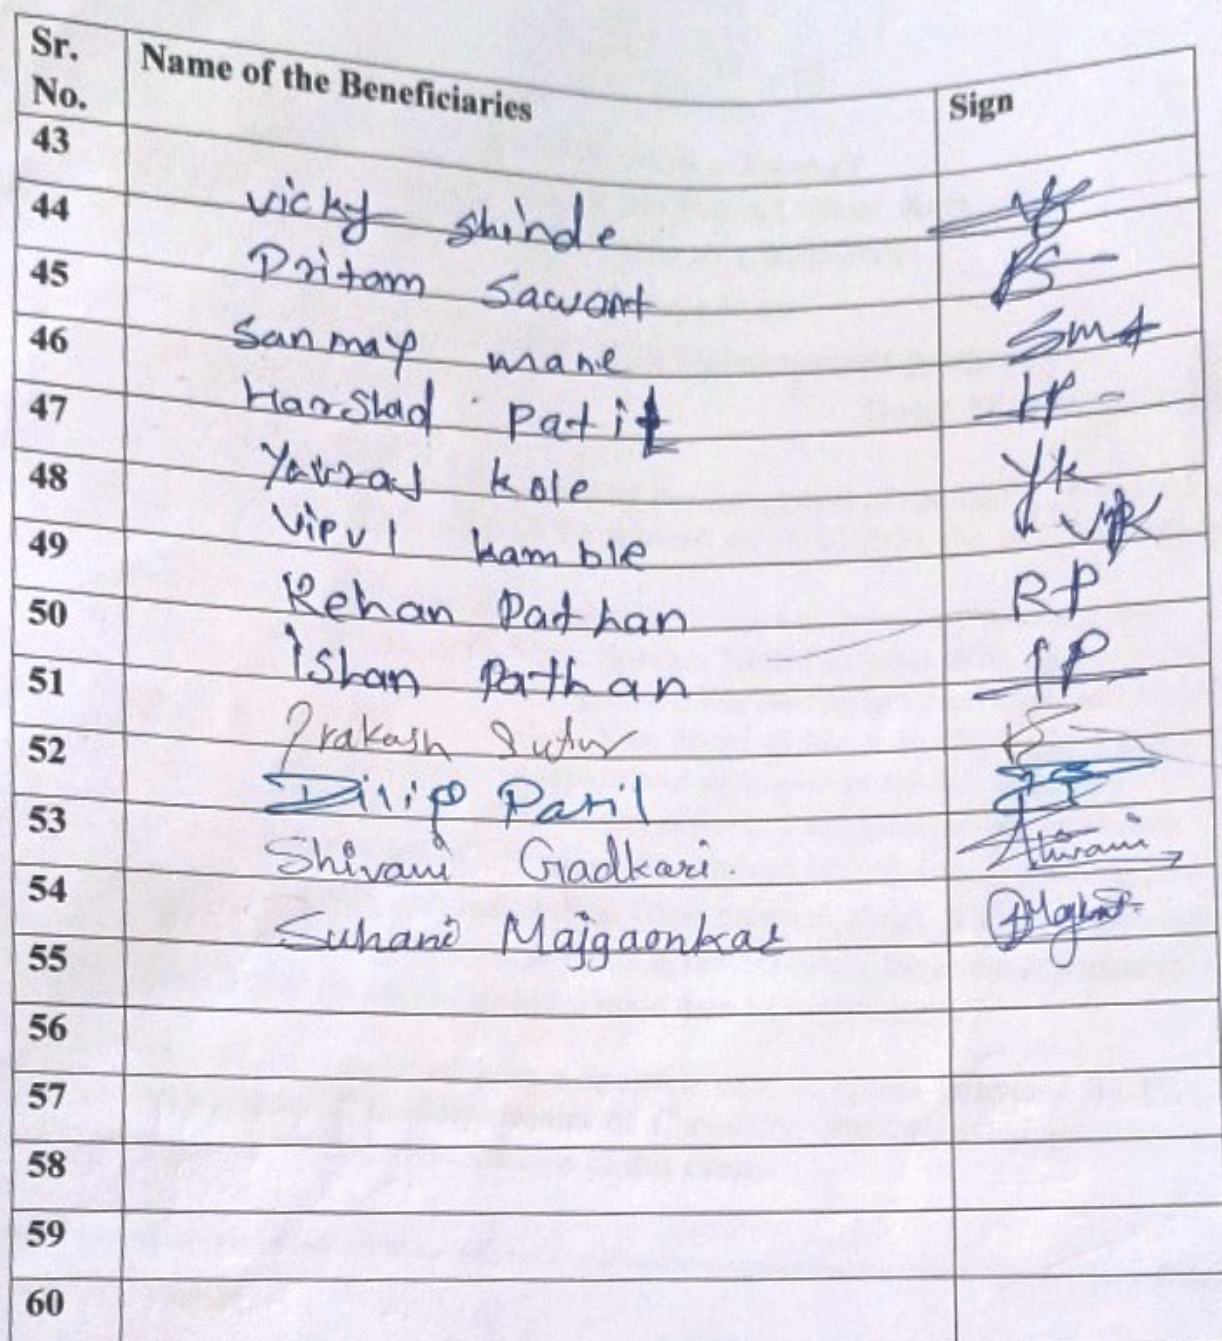 Sr. No. Name of the Beneficiaries Sign
43 vicky shinde
44 Pritam Sawant PS
45 Sanmay mane Sm
46 Harshad Patil HP
47 Yavraj kole Yk
48 Vipul kamble VK
49 Rehan Pathan RP
50 Ishan Pathan IP
51 Prakash Sutar
52 Dilip Patil
53 Shivani Gadkari Shivani
54 Suhani Majgaonkar
55
56
57
58
59
60